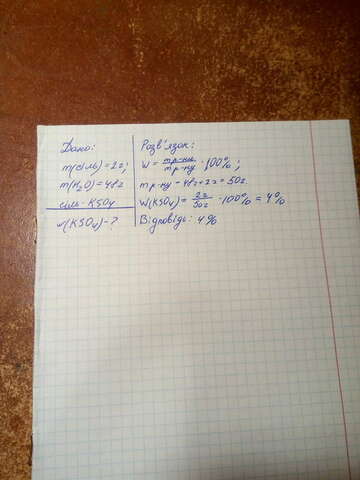 Дано:
m(сіль)=2г;
m(H₂O)=48г
сіль-KSO₄
w(KSO₄)-?
Розв'язок:
W = mр-ни / mр-ну · 100%;
mр-ну = 48г+2г = 50г.
W(KSO₄) = 2г / 50г · 100% = 4%
Відповідь: 4%.